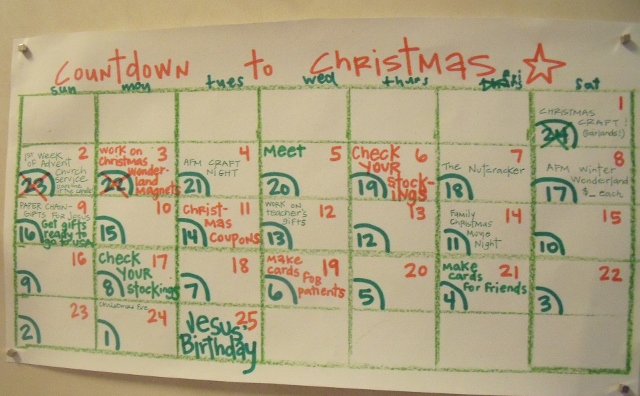 Countdown to Christmas
sun mon tues wed thurs fri sat
1
CHRISTMAS
CRAFT!
24
2
1st Week
of Advent
Church
Service
23
3
work on
Christmas
wonder-
land
Magnets
22
4
AFM CRAFT
NIGHT
21
5
Meet
20
6
Check
YOUR
Stock-
ings
19
7
The Nutcracker
18
8
AFM Winter
Wonderland
$_ each
17
9
PAPER CHAIN-
GIFTS FOR JESUS
Get gifts
ready to
go to USA
16
10
15
11
Christ-
mas
Coupons
14
12
WORK ON
teacher's
gifts
13
13
12
14
Family
Christmas
Movie
Night
11
15
10
16
9
17
Check
YOUR
stockings
8
18
7
19
Make
cards
FOR
patients
6
20
5
21
Make
cards
For friends
4
22
3
23
2
24
Christmas Eve
1
25
Jesus'
Birthday